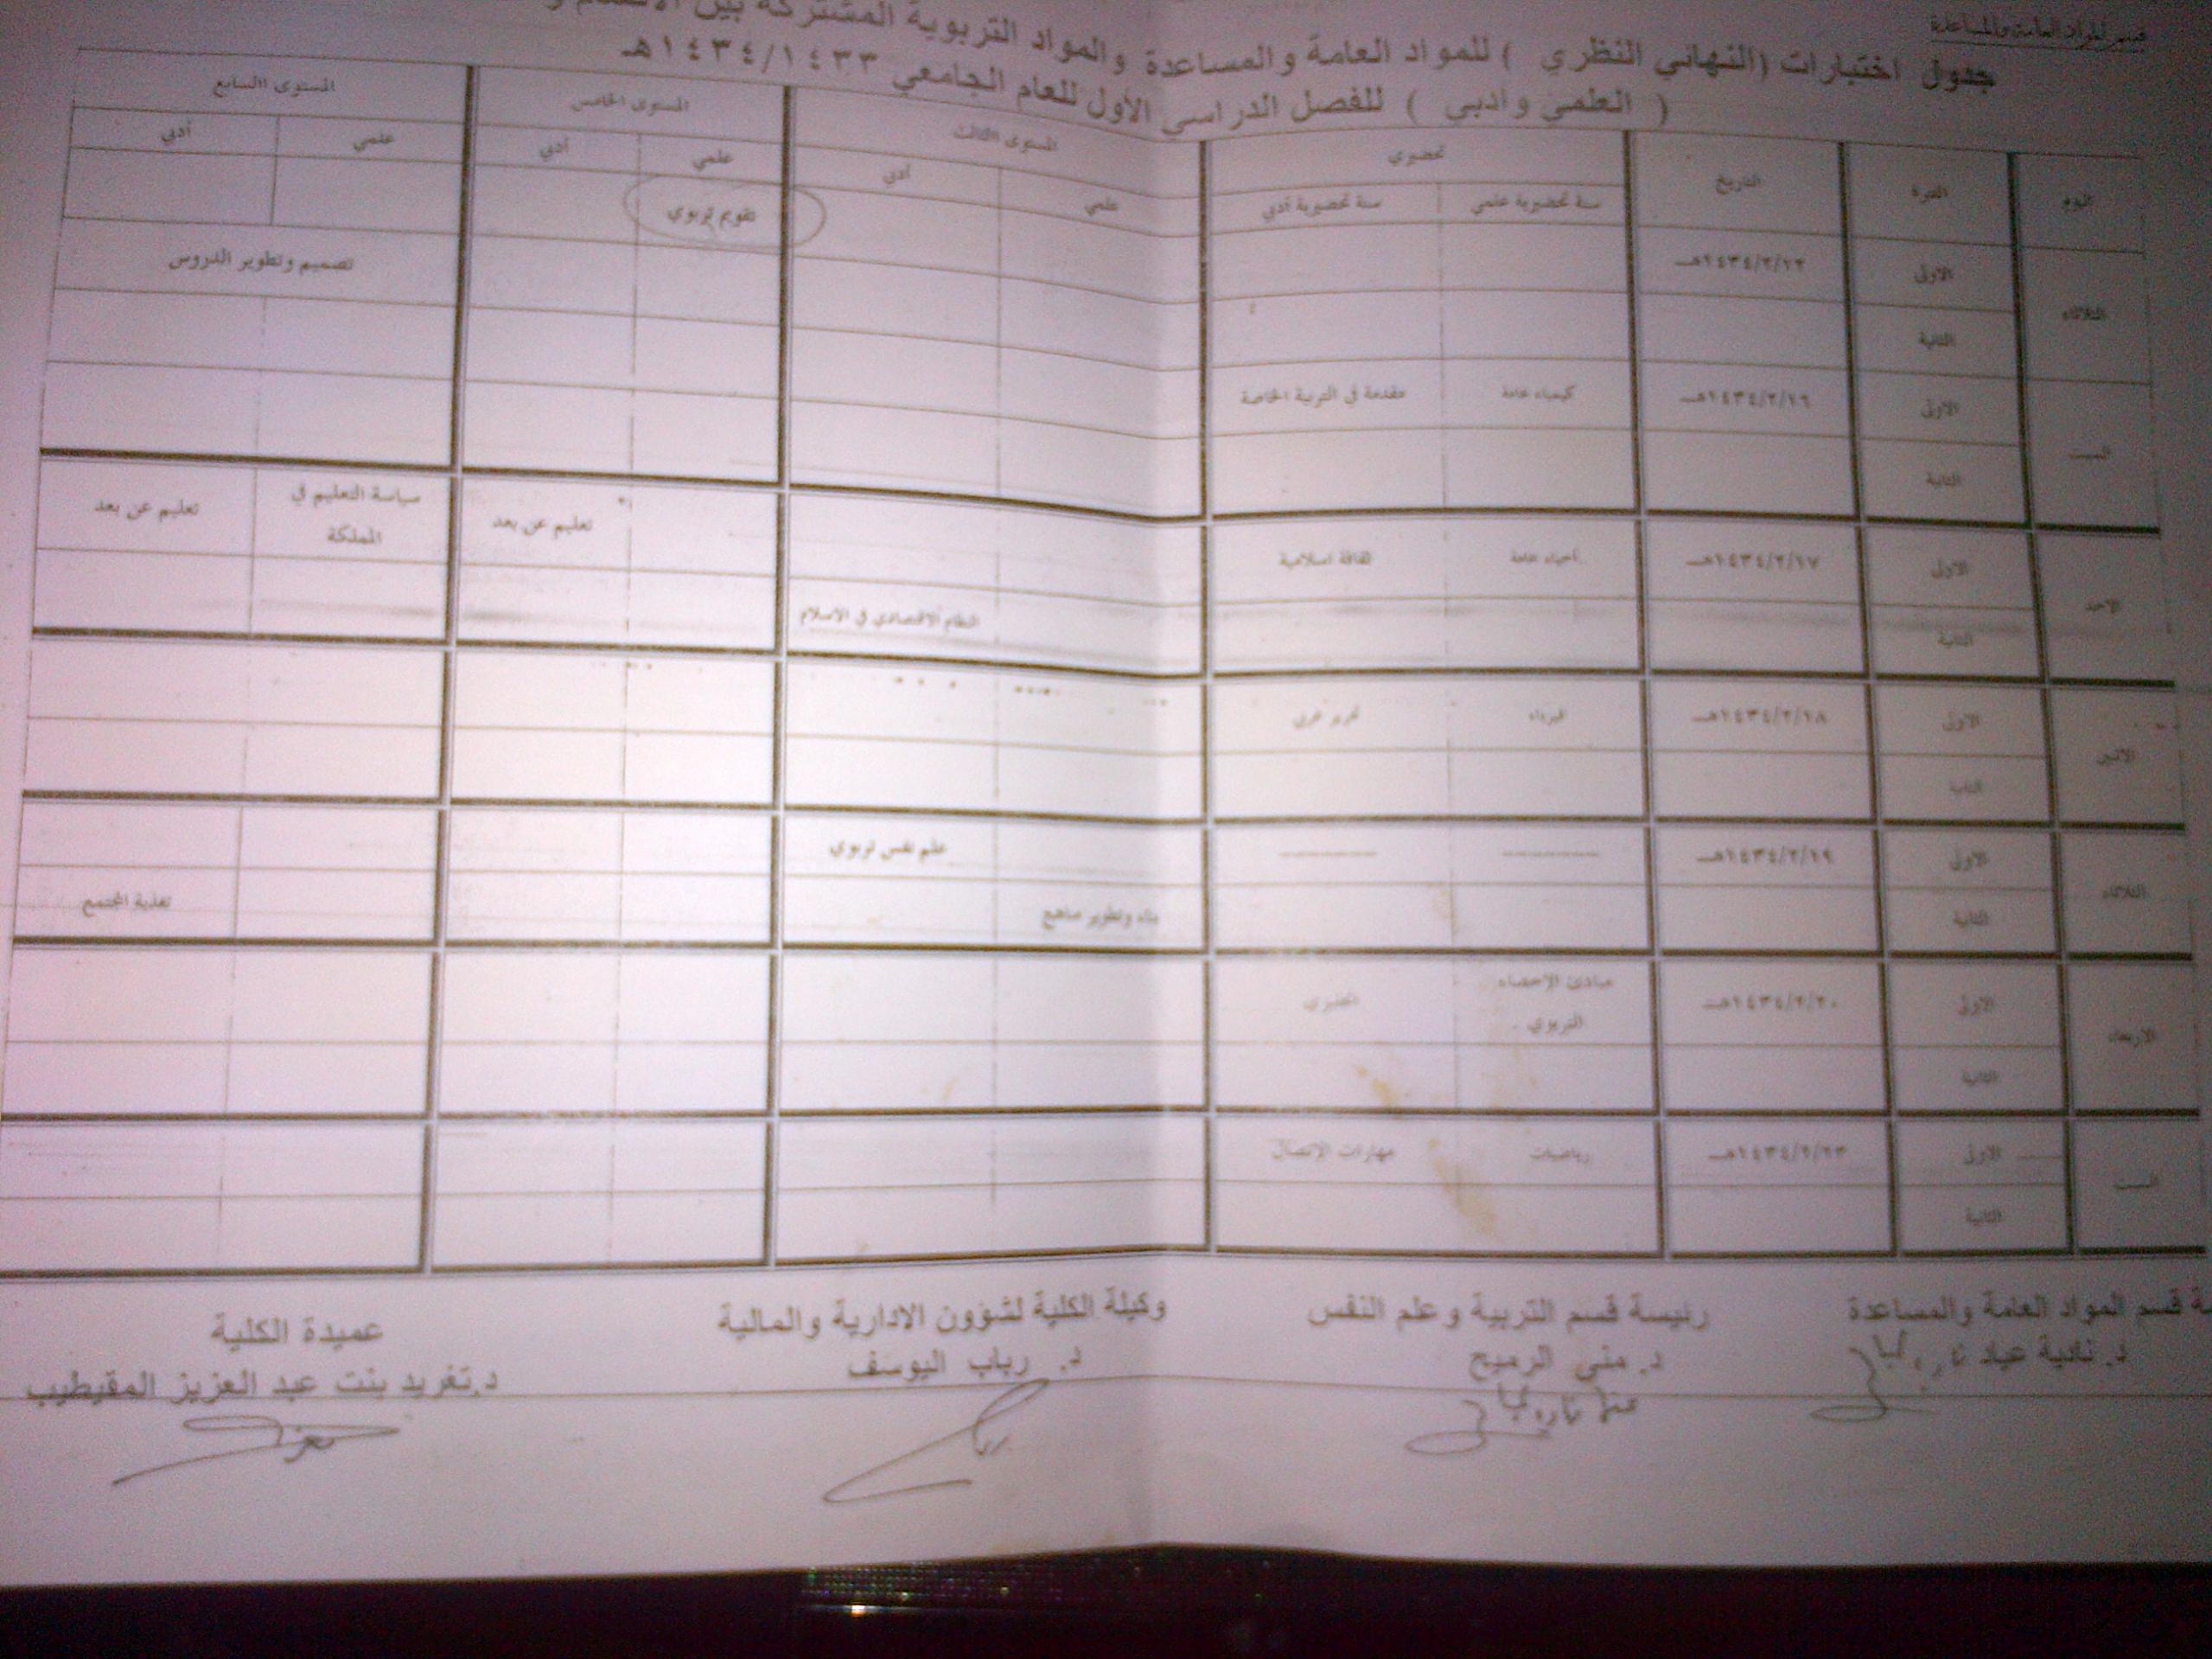 قسم المواد العامة والمساعدة
جدول اختبارات (النهائي النظري ) للمواد العامة والمساعدة والمواد التربوية المشتركة بين الأقسام
( العلمي وأدبي ) للفصل الدراسي الأول للعام الجامعي ١٤٣٤/١٤٣٣هـ
اليوم الفترة التاريخ تحضيري المستوى الثالث المستوى الخامس المستوى السابع
سنة تحضيرية علمي سنة تحضيرية أدبي علمي أدبي علمي أدبي علمي أدبي
الثلاثاء الاولى تقويم تربوي
الثانية تصميم وتطوير الدروس
السبت الاولى ١٤٣٤/٢/١٦هـ كيمياء عامة مقدمة في التربية الخاصة
الثانية
الاحد الاولى ١٤٣٤/٢/١٧هـ أحياء عامة ثقافة اسلامية تعليم عن بعد سياسة التعليم في تعليم عن بعد
المملكة
الثانية النظام الاقتصادي في الاسلام
الاثنين الاولى ١٤٣٤/٢/١٨هـ فيزياء تحرير عربي
الثانية
الثلاثاء الاولى ١٤٣٤/٢/١٩هـ ---------- ---------- علم نفس تربوي
الثانية بناء وتطوير مناهج تغذية المجتمع
الاربعاء الاولى ١٤٣٤/٢/٢٠هـ مبادئ الإحصاء انجليزي
التربوي
الثانية
السبت الاولى ١٤٣٤/٢/٢٣هـ رياضيات مهارات الاتصال
الثانية
قسم المواد العامة والمساعدة رئيسة قسم التربية وعلم النفس وكيلة الكلية لشؤون الادارية والمالية عميدة الكلية
د. نادية عياد د. منى الرميح د. رباب اليوسف د.تغريد بنت عبد العزيز المقيطيب